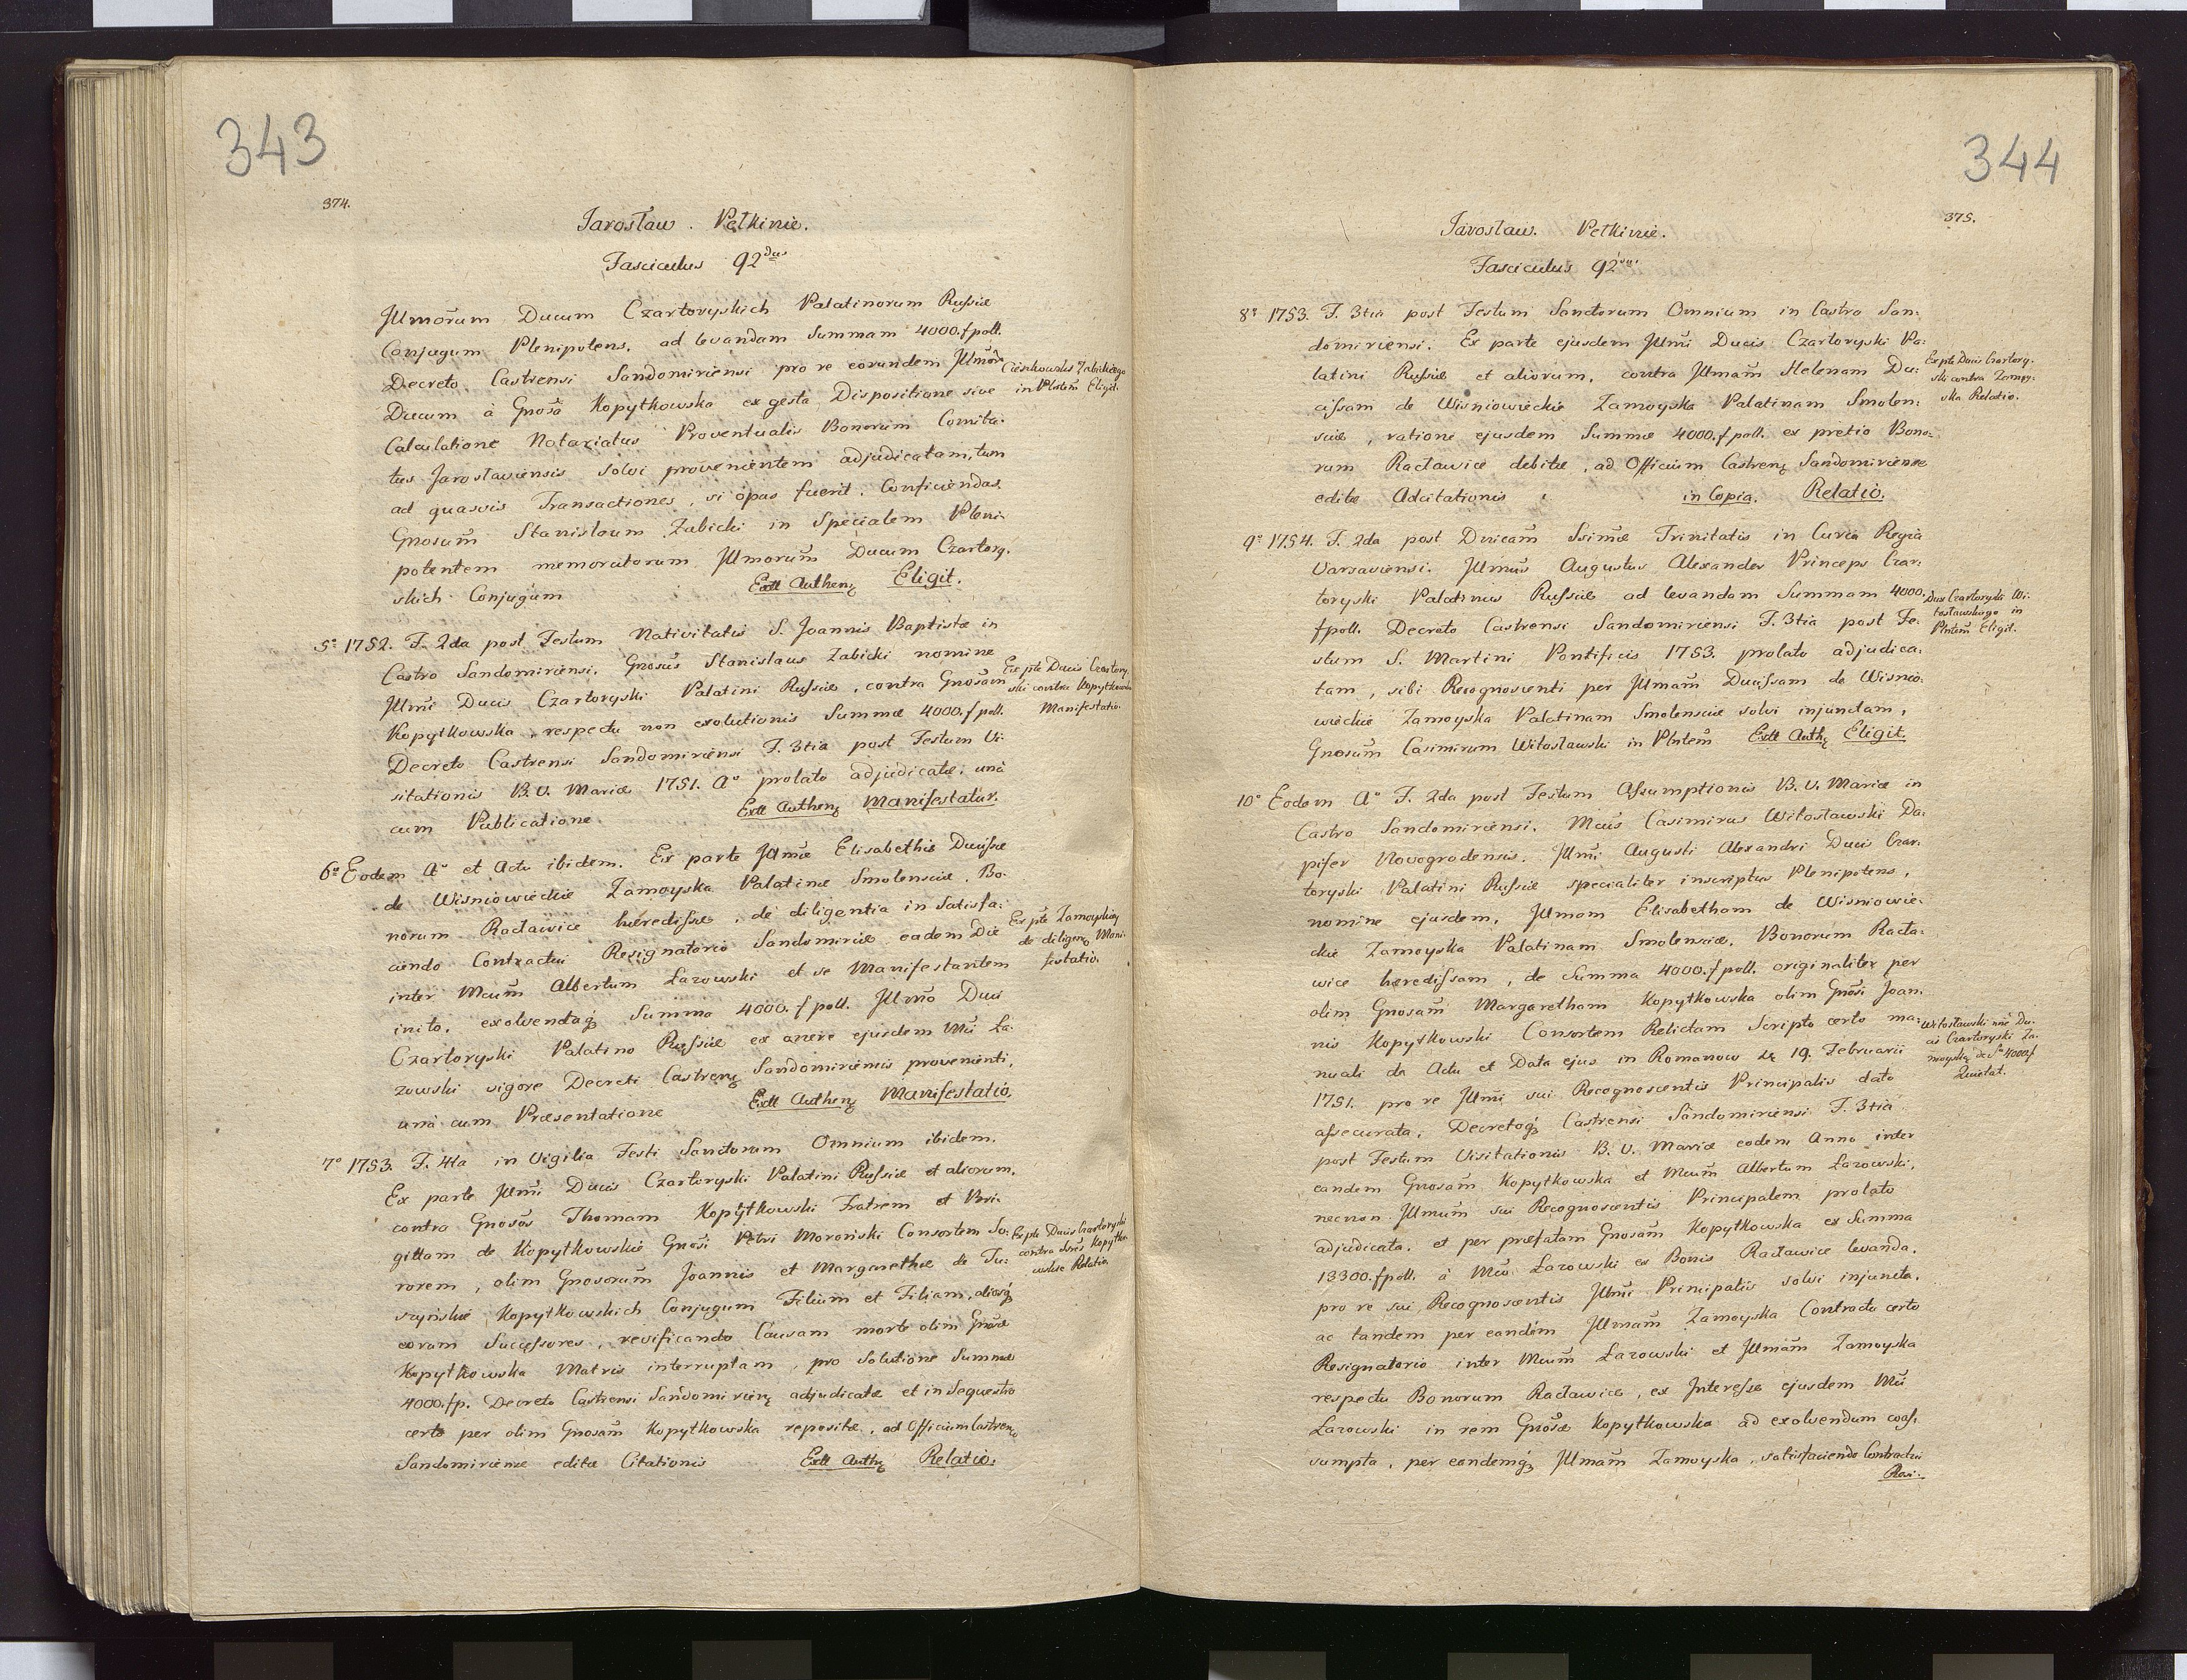 343
374.
Jarosław. Pełkinie.
Fasciculus 92dus
Jllmorum Ducum Czartoryskich Palatinorum Russiæ
Conjugum Plenipotens, ad levandam Summam 4000. fpoll.
Decreto Castrensi Sandomiriensi pro re eorundem Jllmor̃
Ducum à Gnosã Kopytkowska ex gesta Dispositione sive
Calculatione Notariatus Proventualis Bonorum Comita:
tus Jaroslaviensis solvi provenientem adjudicatam, tum
ad quasvis Transactiones, si opus fuerit. Conficiendas.
Gnosum̃ Stanislaum Zabicki in Specialem Pleni:
potentem memoratorum Jllmorum̃ Ducum Czartory.
skich Conjugum Extt Authenꝫ Eligit.
Cieszkowski Zabickiego
in Plntem̃ Eligit.
5º 1752. F. 2da post Festum Nativitatis S. Joannis Baptistæ in
Castro Sandomiriensi. Gnosus̃ Stanislaus Zabicki nomine
Jllmi̇̃ Ducis Czartoryski Palatini Russiæ, contra Gnosam̃
Kopytkowska, respectu non exolutionis Summæ 4000. fpoll.
Decreto Castrensi Sandomiriensi F. 3tia post Festum Vi:
sitationis B. V. Mariæ 1751. Aº prolato adjudicatæ, unà
cum Publicatione. Extt Authenꝫ Manifestatur.
Ex pte Ducis Czartory
ski contra Kopytkowska
Manifestatio.
6º Eodem Aº et Actu ibidem. Ex parte Jllmæ̃ Elisabethæ Ducissæ
de Wisniowieckie Zamoyska Palatinæ Smolensciæ. Bo:
norum Racławice hæredissæ, de diligentia in satisfa:
ciendo Contractui Resignatorio Sandomiriæ eadem Die
inter Mcum̃ Albertum Łazowski et se Manifestantem
inito, exolvendaqꝫ Summa 4000. fpoll. Jllmõ Duci
Czartoryski Palatino Russiæ ex onere ejusdem Mci̇̃ Ła:
zowski vigore Decreti Castrenꝫ Sandomiriensis provenienti,
unà cum Præsentatione Extt Authenꝫ Manifestatio.
Ex pte Zamoyskiey
de diligenꝫ Mani:
festatio.
7º 1753. F. 4ta in Vigilia Festi Sanctorum Omnium ibidem.
Ex parte Jllmi̇̃ Ducis Czartoryski Palatini Russiæ et aliorum,
contra Gnosos̃ Thomam Kopytkowski Fratrem et Bri:
gittam de Kopytkowskie Gnosi̇̃ Petri Moroński Consortem So:
rorem, olim Gnosorum̃ Joannis et Margarethæ de Tu:
szyńskie Kopytkowskich Conjugum Filium et Filiam, aliosqꝫ
eorum Successores, revificando Causam morte olim Gnosæ̃
Kopytkowska Matris interruptam, pro solutione Summæ
4000. fp. Decreto Castrensi Sandomirienꝫ adjudicatæ et in Sequestro
certo per olim Gnosam̃ Kopytkowska repositæ, ad Officium Castrenꝫ
Sandomiriense editæ Citationis Extt Authꝫ Relatio.
Ex pte Ducis Czartoryski
contra Sʳᵉˢ Kopytko:
wskie Relatio.
344
375.
Jarosław. Pełkinie.
Fasciculus 92dus
8º 1753. F. 3tia post Festum Sanctorum Omnium in Castro San:
domiriensi. Ex parte ejusdem Jllmi̇̃ Ducis Czartoryski Pa:
latini Russiæ et aliorum, contra Jllmam̃ Helenam Du:
cissam de Wisniowieckie Zamoyska Palatinam Smolen:
sciæ, ratione ejusdem Summæ 4000. fpoll. ex pretio Bono:
rum Racławice debitæ, ad Officium Castrenꝫ Sandomiriense
editæ Adcitationis in Copia. Relatio.
Ex pte Ducis Czartory.
ski contra Zamoy:
ska Relatio.
9º 1754. F. 2da post Dnicam̃ Ssimæ̃ Trinitatis in Curia Regia
Varsaviensi. Jllmus̃ Augustus Alexander Princeps Czar:
toryski Palatinus Russiæ ad levandam Summam 4000.
fpoll. Decreto Castrensi Sandomiriensi F. 3tia post Fe:
stum S. Martini Pontificis 1753. prolato adjudica:
tam, sibi Recognoscenti per Jllmam̃ Ducissam de Wisnio:
wieckie Zamoyska Palatinam Smolensciæ solvi injunctam,
Gnosum̃ Casimirum Witosławski in Plntem̃ Extt Authꝫ Eligit.
Dux Czartoryski Wi:
tosławskiego in
Plntem̃ Eligit.
10º Eodem Aº F. 2da post Festum Assumptionis B. V. Mariæ in
Castro Sandomiriensi. Mcus̃ Casimirus Witosławski Da:
pifer Novogrodensis, Jllmi̇̃ Augusti Alexandri Ducis Czar:
toryski Palatini Russiæ specialiter inscriptus Plenipotens,
nomine ejusdem, Jllmam Elisabetham de Wisniowie:
ckie Zamoyska Palatinam Smolensciæ, Bonorum Racła:
wice hæredissam, de Summa 4000. fpoll. originaliter per
olim Gnosam̃ Margaretham Kopytkowska olim Gnosi̇̃ Joan:
nis Kopytkowski Consortem Relictam Scripto certo ma:
nuali de Actu et Data ejus in Romanow dꝫ 19. Februarii
1751. pro re Jllmi̇̃ sui Recognoscentis Principalis dato
assecurata, Decretoqꝫ Castrensi Sandomiriensi F. 3tia
post Festum Visitationis B. V. Mariæ eodem Anno inter
eandem Gnosam̃ Kopytkowska et Mcum̃ Albertum Łazowski,
necnon Jllmum̃ sui Recognoscentis Principalem prolato
adjudicata, et per præfatam Gnosam̃ Kopytkowska ex Summa
13300. fpoll. à Mco̊ Łazowski ex Bonis Racławice levanda,
pro re sui Recognoscentis Jllmi̇̃ Principalis solvi injuncta,
ac tandem per eandem Jllmam̃ Zamoyska Contractu certo
Resignatorio inter Mcum̃ Łazowski et Jllmam̃ Zamoyska
respectu Bonorum Racławice, ex Interesse ejusdem Mci̇̃
Łazowski in rem Gnosæ̃ Kopytkowska ad exolvendum coas:
sumpta, per eandemqꝫ Jllmam̃ Zamoyska, satisfaciendo Contractui
Resi:
Witosławski nie Du:
cis Czartoryski Za:
moyską de Sa 4000f
Quietat.